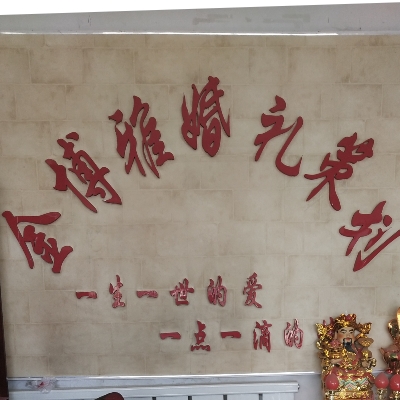 金博雅婚礼策划
一生一世的爱
一点一滴的